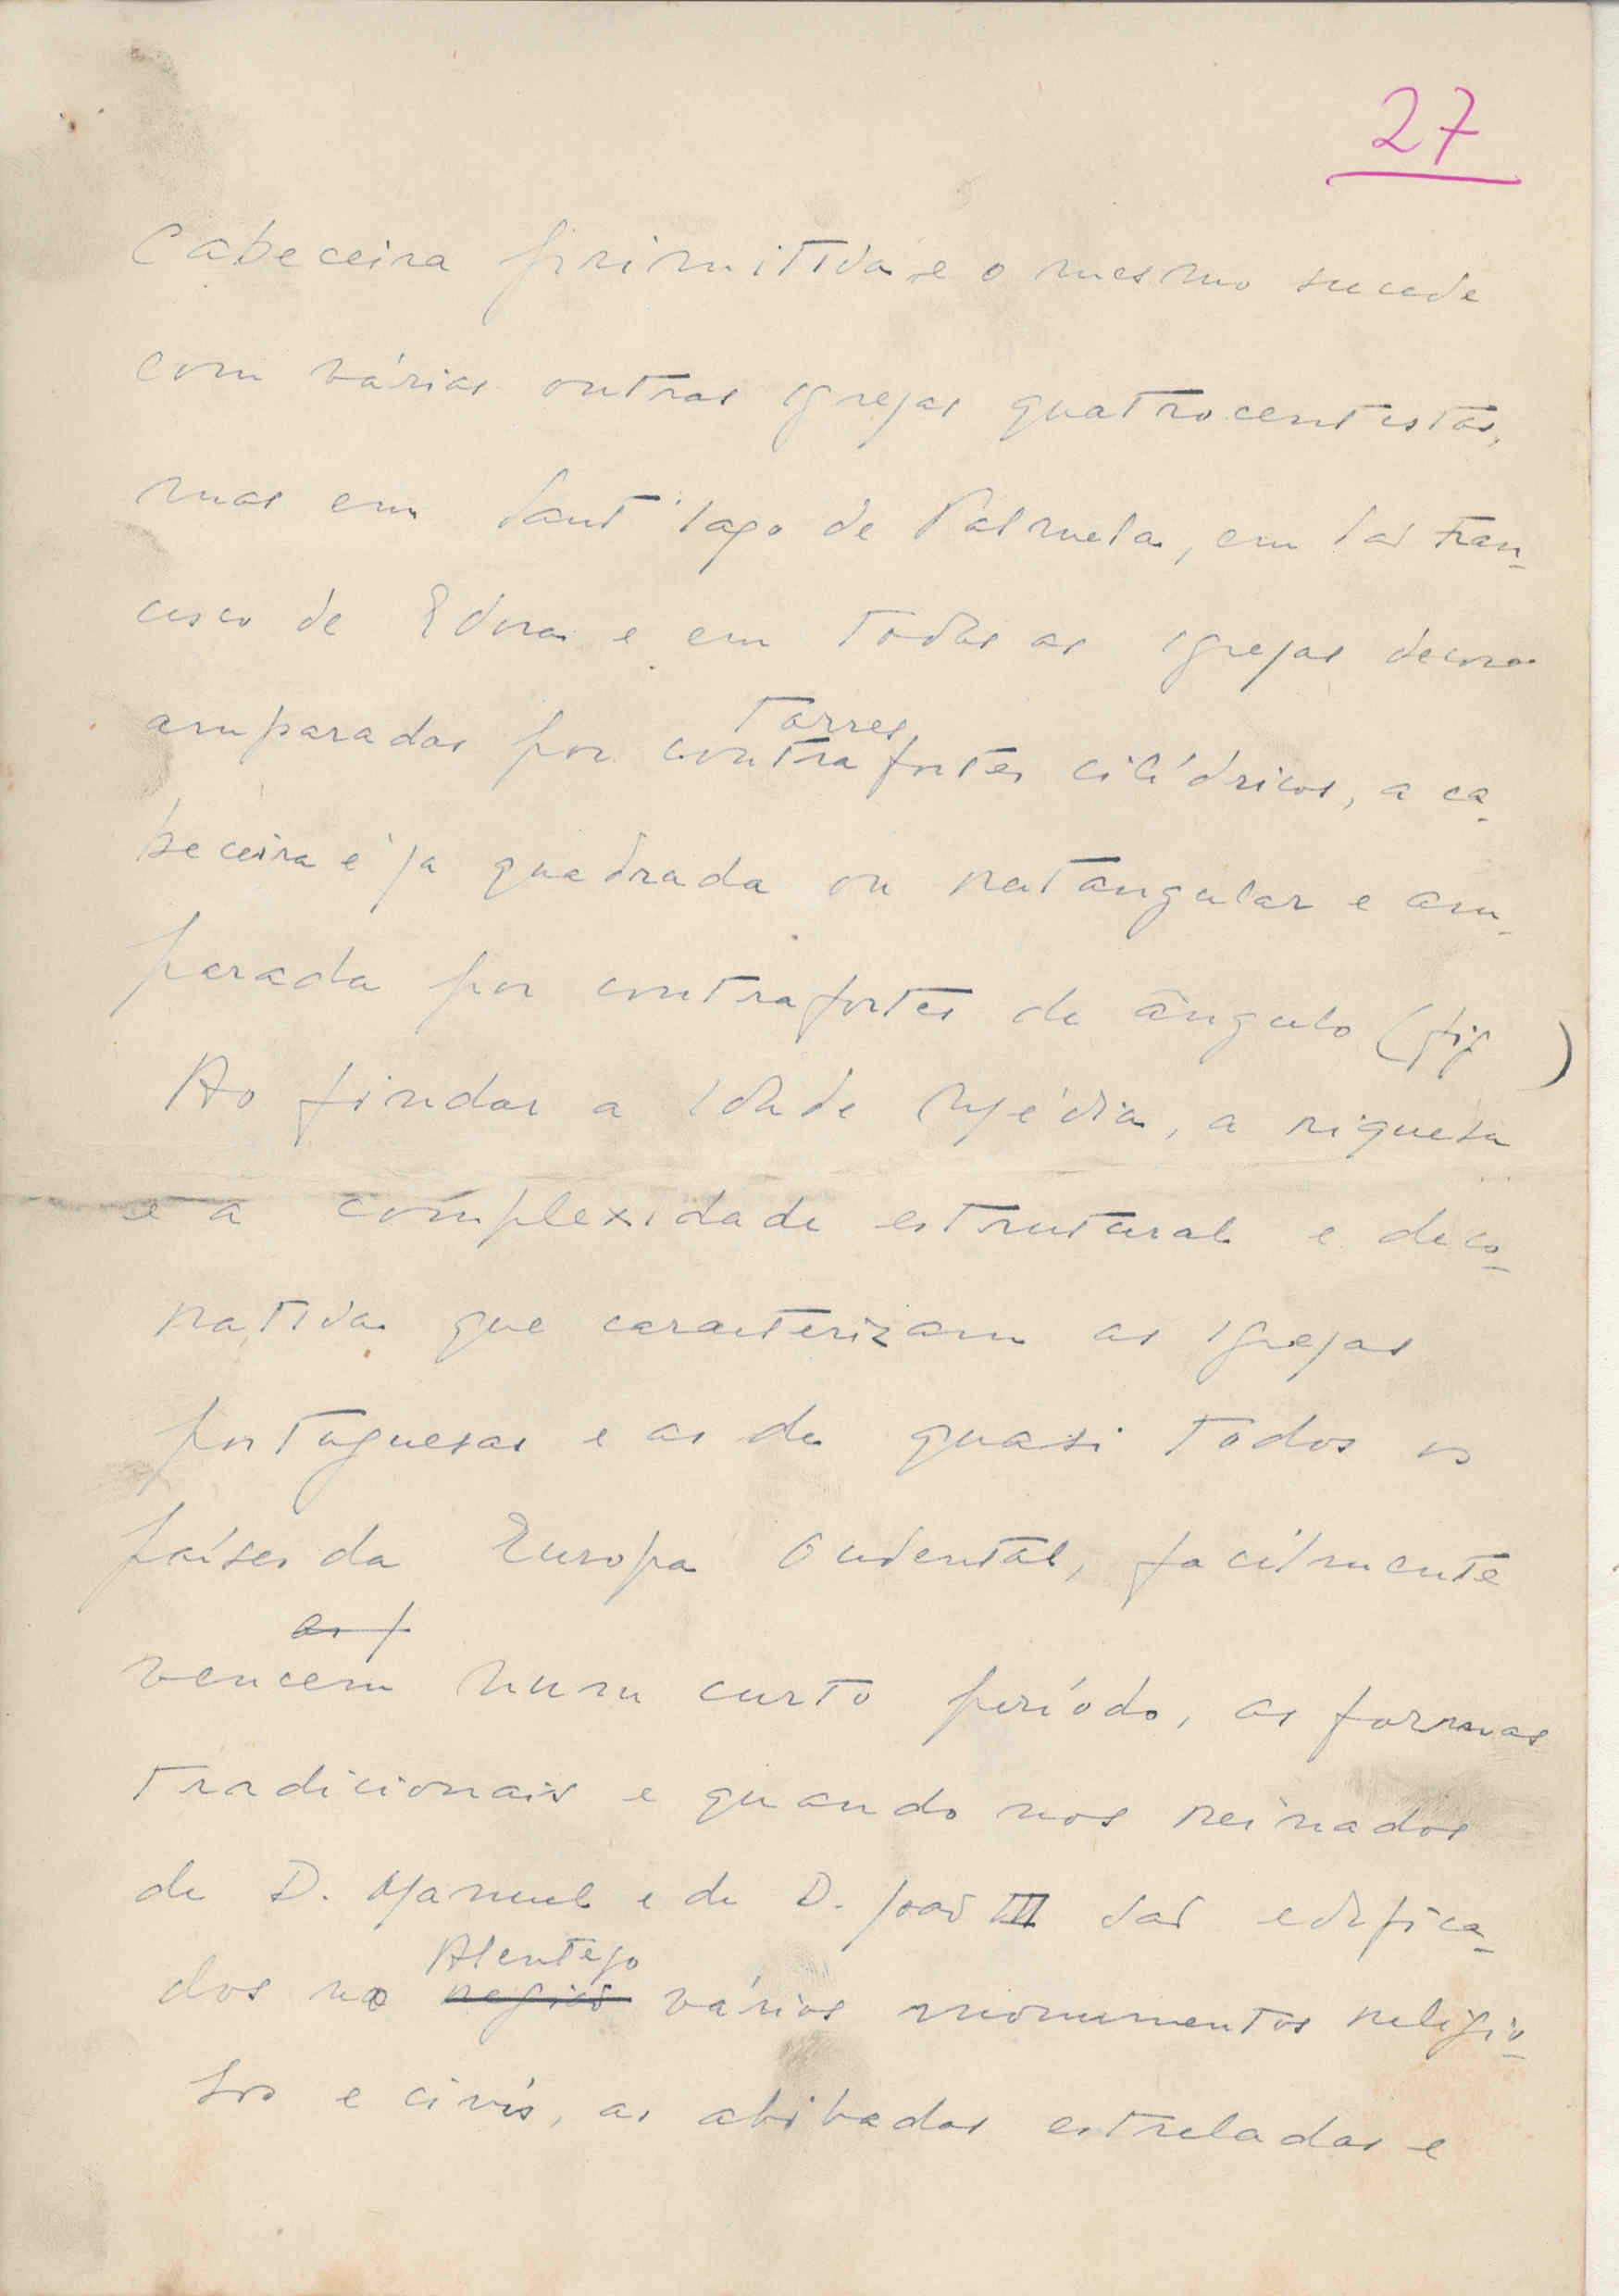 27
Cabeceira primitiva e o mesmo sucede
com várias outras igrejas quatrocentistas,
mas em Sant'Iago de Palmela, em São Fran-
cisco de Evora e em todas as igrejas
torres
amparadas por contrafortes cilídricos, a ca-
beceira é já quadrada ou retangular e am-
parada por contrafortes de ângulo (fig )
Ao findar a Idade Média, a riquesa
e a complexidade estrutural e deco-
rativa que caracterizam as igrejas
portuguesas e as de quasi todos os
países da Europa Ocidental, facilmente
as
vencem num curto período, as formas
tradicionais e quando nos reinados
de D. Manuel e de D. João III são edifica-
Alentejo
dos no região vários monumentos religio-
sos e civis, as abóbadas estreladas e